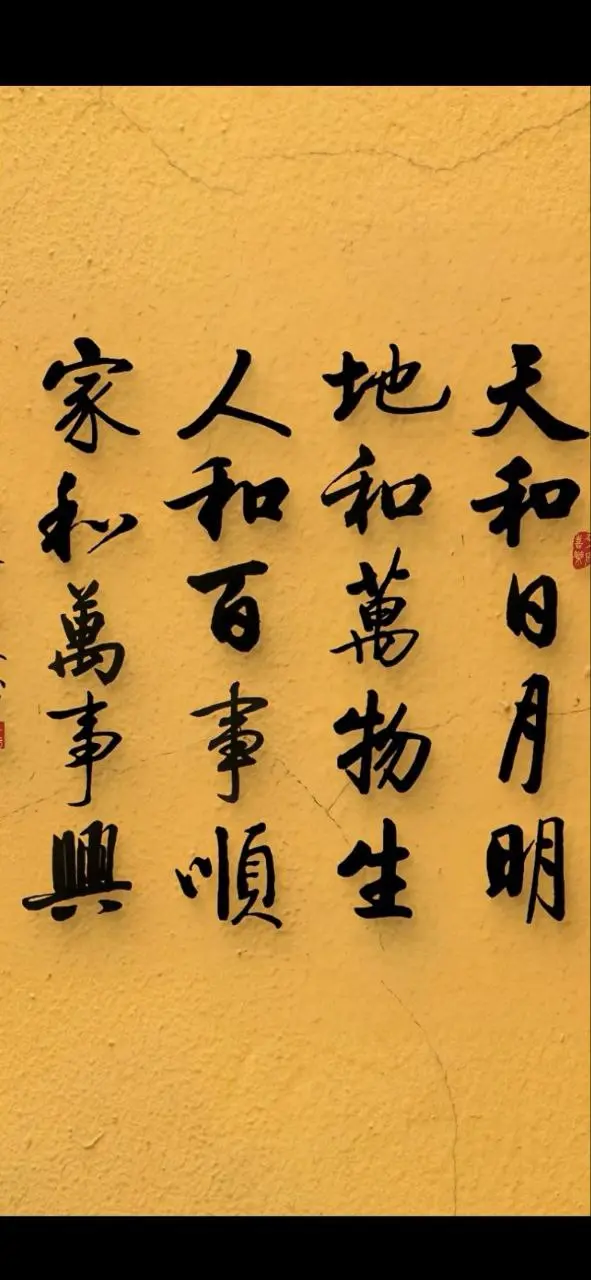 天和日月明
地和萬物生
人和百事順
家和萬事興